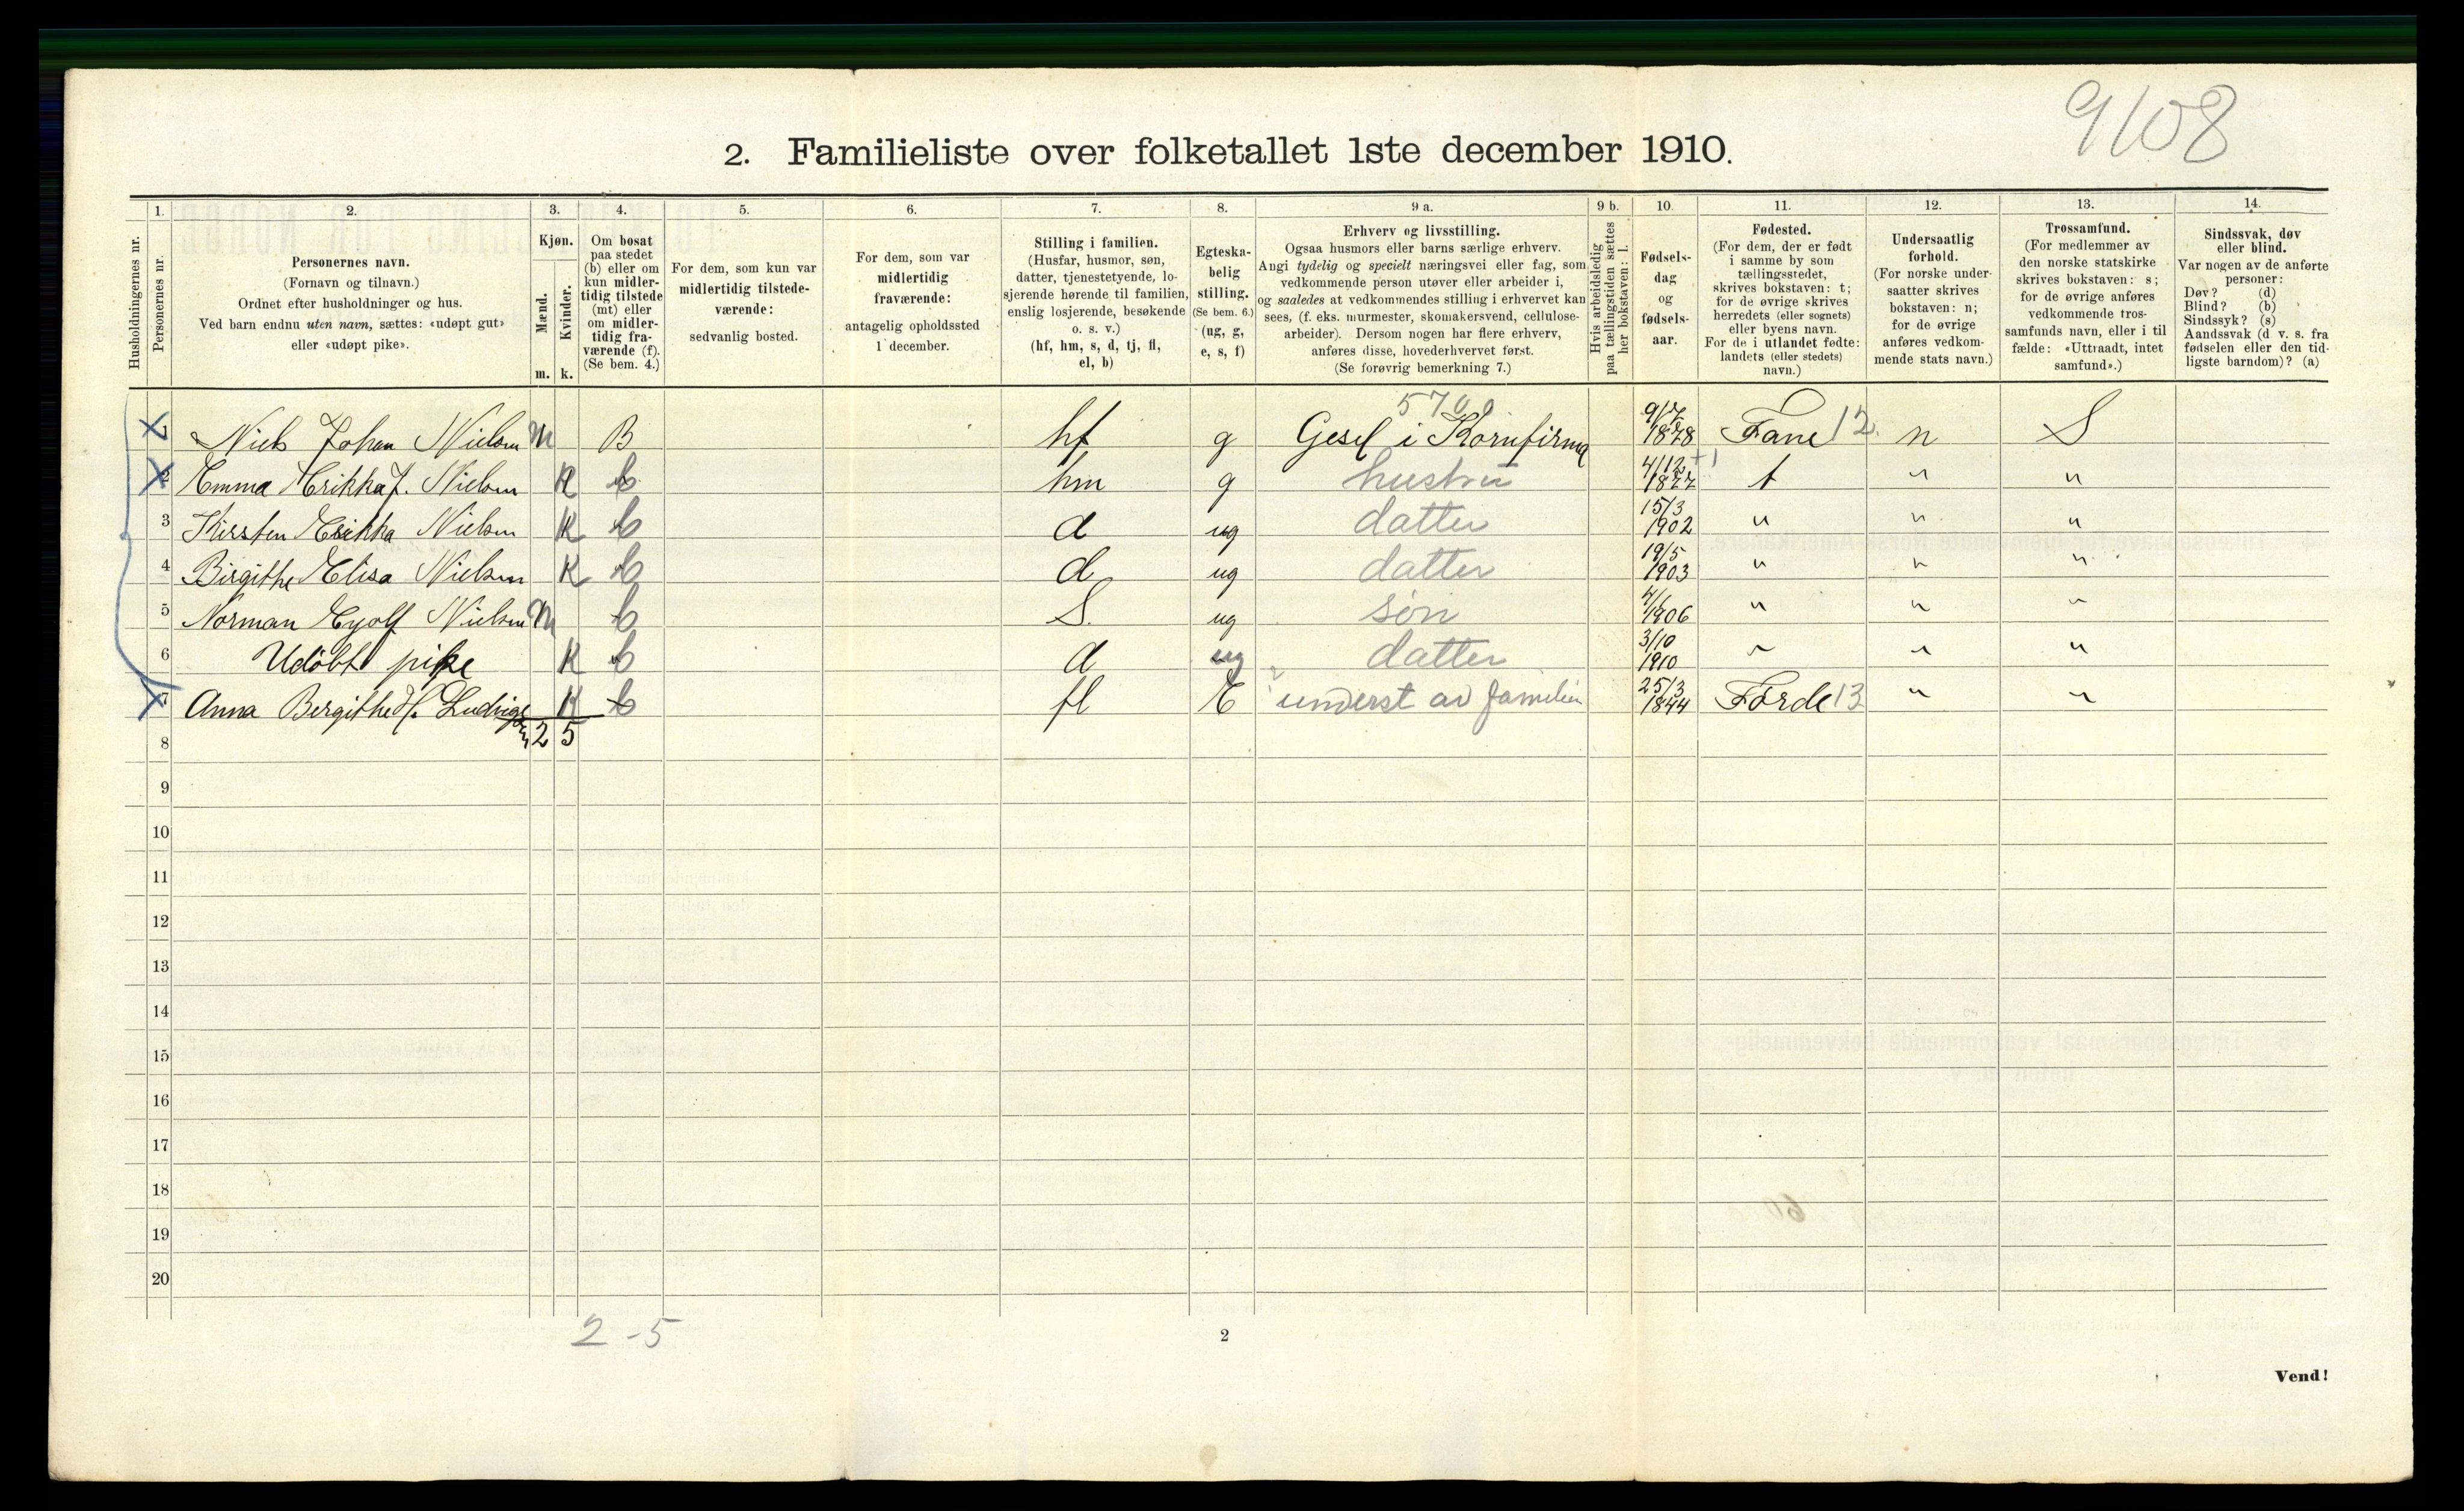 9108
2. Familieliste over folketallet 1ste december 1910.
1. 2. 3. 4. 5. 6. 7. 8. 9 a. 9 b. 10. 11. 12. 13. 14.
Husholdningernes nr.
Personernes nr.
Personernes navn.
(Fornavn og tilnavn.)
Ordnet efter husholdninger og hus.
Ved barn endnu uten navn, sættes: «udøpt gut»
eller «udøpt pike».
Kjøn.
Mænd.
Kvinder.
m. k.
Om bosat
paa stedet
(b) eller om
kun midler-
tidig tilstede
(mt) eller
om midler-
tidig fra-
værende (f).
(Se bem. 4.)
For dem, som kun var
midlertidig tilstede-
værende:
sedvanlig bosted.
For dem, som var
midlertidig
fraværende:
antagelig opholdssted
1 december.
Stilling i familien.
(Husfar, husmor, søn,
datter, tjenestetyende, lo-
sjerende hørende til familien,
enslig losjerende, besøkende
o. s. v.)
(hf, hm, s, d, tj, fl,
el, b)
Egteska-
belig
stilling.
(Se bem. 6.)
(ug, g,
e, s, f)
Erhverv og livsstilling.
Ogsaa husmors eller barns særlige erhverv.
Angi tydelig og specielt næringsvei eller fag, som
vedkommende person utøver eller arbeider i,
og saaledes at vedkommendes stilling i erhvervet kan
sees, (f. eks. murmester, skomakersvend, cellulose-
arbeider). Dersom nogen har flere erhverv,
anføres disse, hovederhvervet først.
(Se forøvrig bemerkning 7.)
Hvis arbeidsledig
paa tællingstiden sættes
her bokstaven: l.
Fødsels-
dag
og
fødsels-
aar.
Fødested.
(For dem, der er født
i samme by som
tællingsstedet,
skrives bokstaven: t;
for de øvrige skrives
herredets (eller sognets)
eller byens navn.
For de i utlandet fødte:
landets (eller stedets)
navn.)
Undersaatlig
forhold.
(For norske under-
saatter skrives
bokstaven: n;
for de øvrige
anføres vedkom-
mende stats navn.)
Trossamfund.
(For medlemmer av
den norske statskirke
skrives bokstaven: s;
for de øvrige anføres
vedkommende tros-
samfunds navn, eller i til
fælde: «Uttraadt, intet
samfund».)
Sindssvak, døv
eller blind.
Var nogen av de anførte
personer:
Døv? (d)
Blind? (b)
Sindssyk? (s)
Aandssvak (d v. s. fra
fødselen eller den tid-
ligste barndom)? (a)
5700
1 Niels Johan Nielsen m B hf g Gesel i Kornfirma 1878 Fane 12 n S
2 Emma Erikka J. Nielsen K b hm g hustru 4/12 1877 t " "
3 Kirsten Erikka Nielsen K b d ug datter 15/3 1902 " " "
4 Birgithe Elisa Nielsen K b d ug datter 19/5 1903 " " "
5 Norman Eyolf Nielsen m b S. ug søn 1906 " " "
6 Udöbt pike K b d ug datter 3/10 1910 " " "
7 Anna Bergithe H. Ludvigsen K b fl E underst av familien 25/3 1844 Førde 13 " "
8 2 5
9
10
11
12
13
14
15
16
17
18
19
20
2-5
2
Vend!